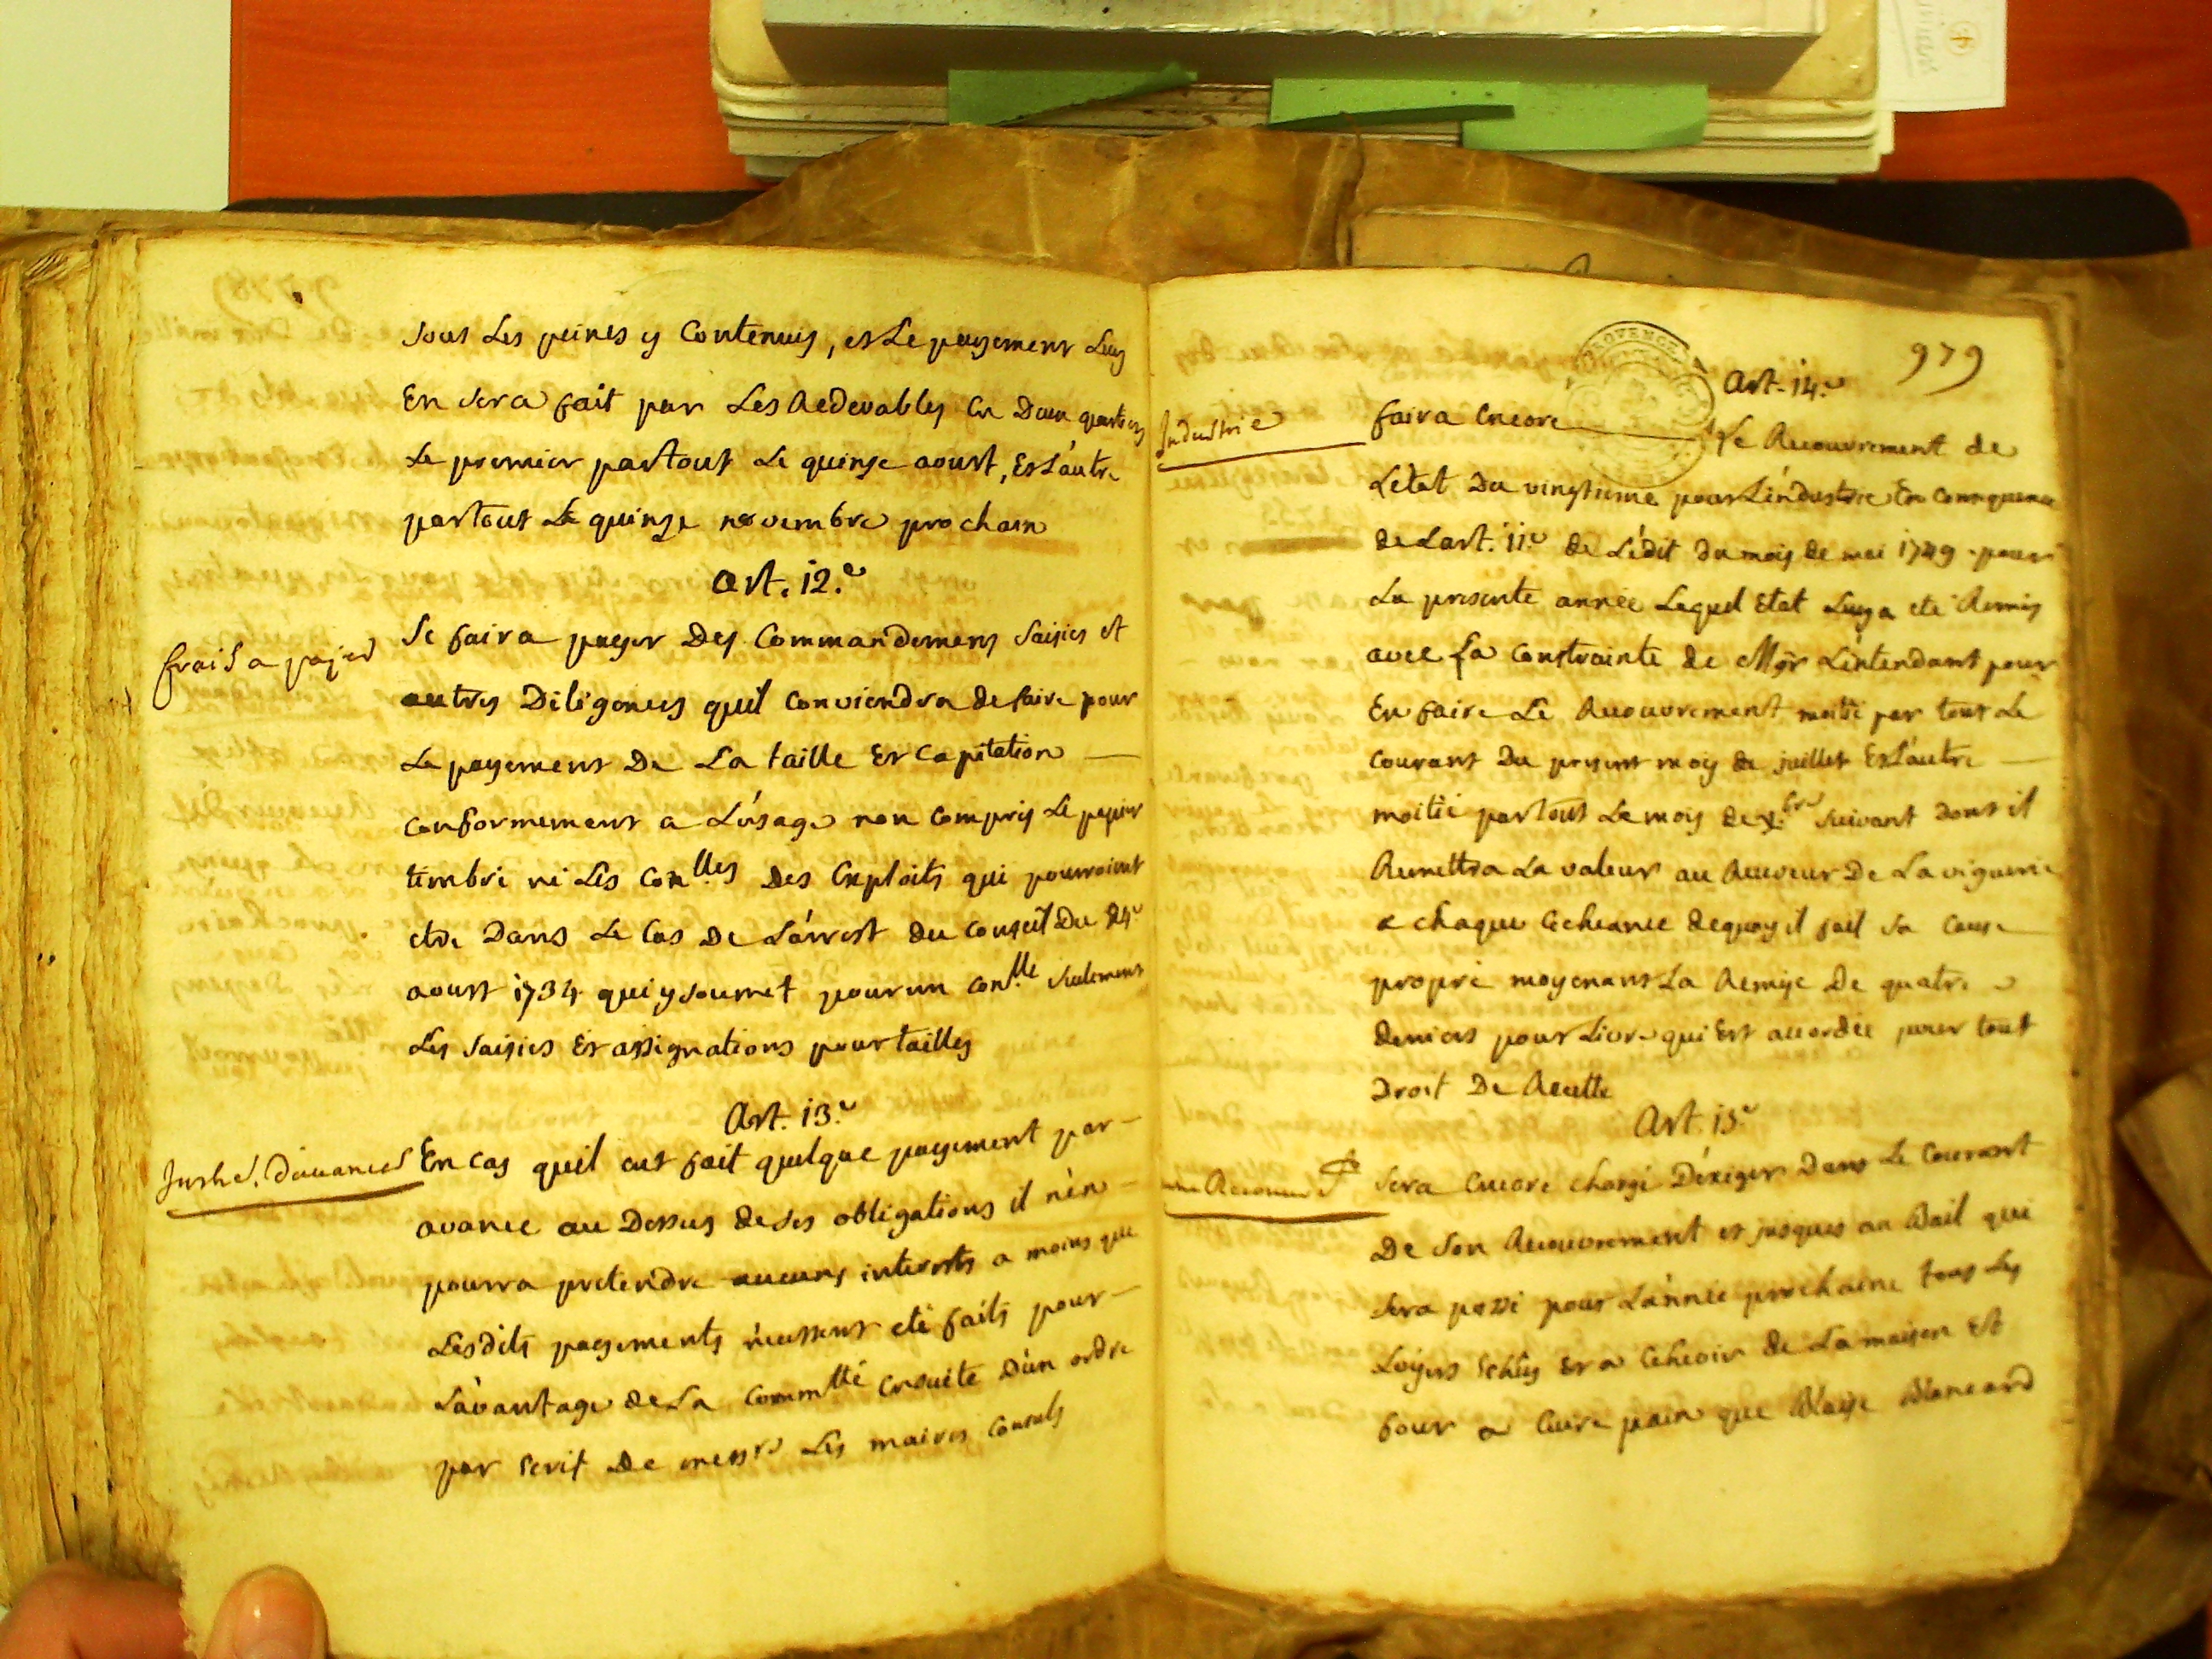 sous Les peines y Contenuës, et Le payement Luy
En sera fait par Les Redevables En Deux quartiers
Le premier partout Le quinze aoust, Et L'autre
partout Le quinze novembre prochain
Art. 12.e
frais a payer
Se faira payer Des Commandemens saisies et
autres Diligences quil Conviendra de faire pour
Le payement De La taille Et Capitation
Conformement a L'usage non Compris Le papier
timbré ni Les Con.lles Des Exploits qui pourroient
etre Dans Le Cas De L'arrest du Conseil Du 24.e
aoust 1734 qui y soumet pour un Con.lle seulement
Les saisies Et assignations pour tailles
Art. 13.e
En Cas quil eut fait quelque payement par
avance au Dessus de ses obligations il n'en
pourra pretendre aucuns interests a moins que
Lesdits payements n'eussent eté faits pour
L'avantage de La Comm.tté Ensuite D'un ordre
par Ecrit De mess.rs Les maires Consuls
979
Art. 14.e
Industrie
faira Encore Le Recouvrement de
L'etat Du vingtieme pour L'industrie En Consequence
de L'art. 11.e de L'édit du mois de mai 1749 pour
La presente année Lequel Etat Luy a eté Remis
avec La Contrainte de Mgr L'intendant pour
En faire Le Recouvrement moitié par tout Le
Courant Du present mois de juillet Et L'autre
moitié partout Le mois de x.bre suivant dont il
Remettra La valeur au Receveur De La viguerie
a chaque Echeance dequoy il fait sa Cause
propre moyenant La Remise De quatre
deniers pour Livre qui Est accordée pour tout
Droit De Recette
Art. 15.e
Sera Encore chargé D'exiger Dans Le Courant
De son Recouvrement et jusques au Bail qui
sera passé pour L'année prochaine tous Les
Loyers Echûs Et a Echeoir de La maison Et
four a Cuire pain que Blaise Blancard